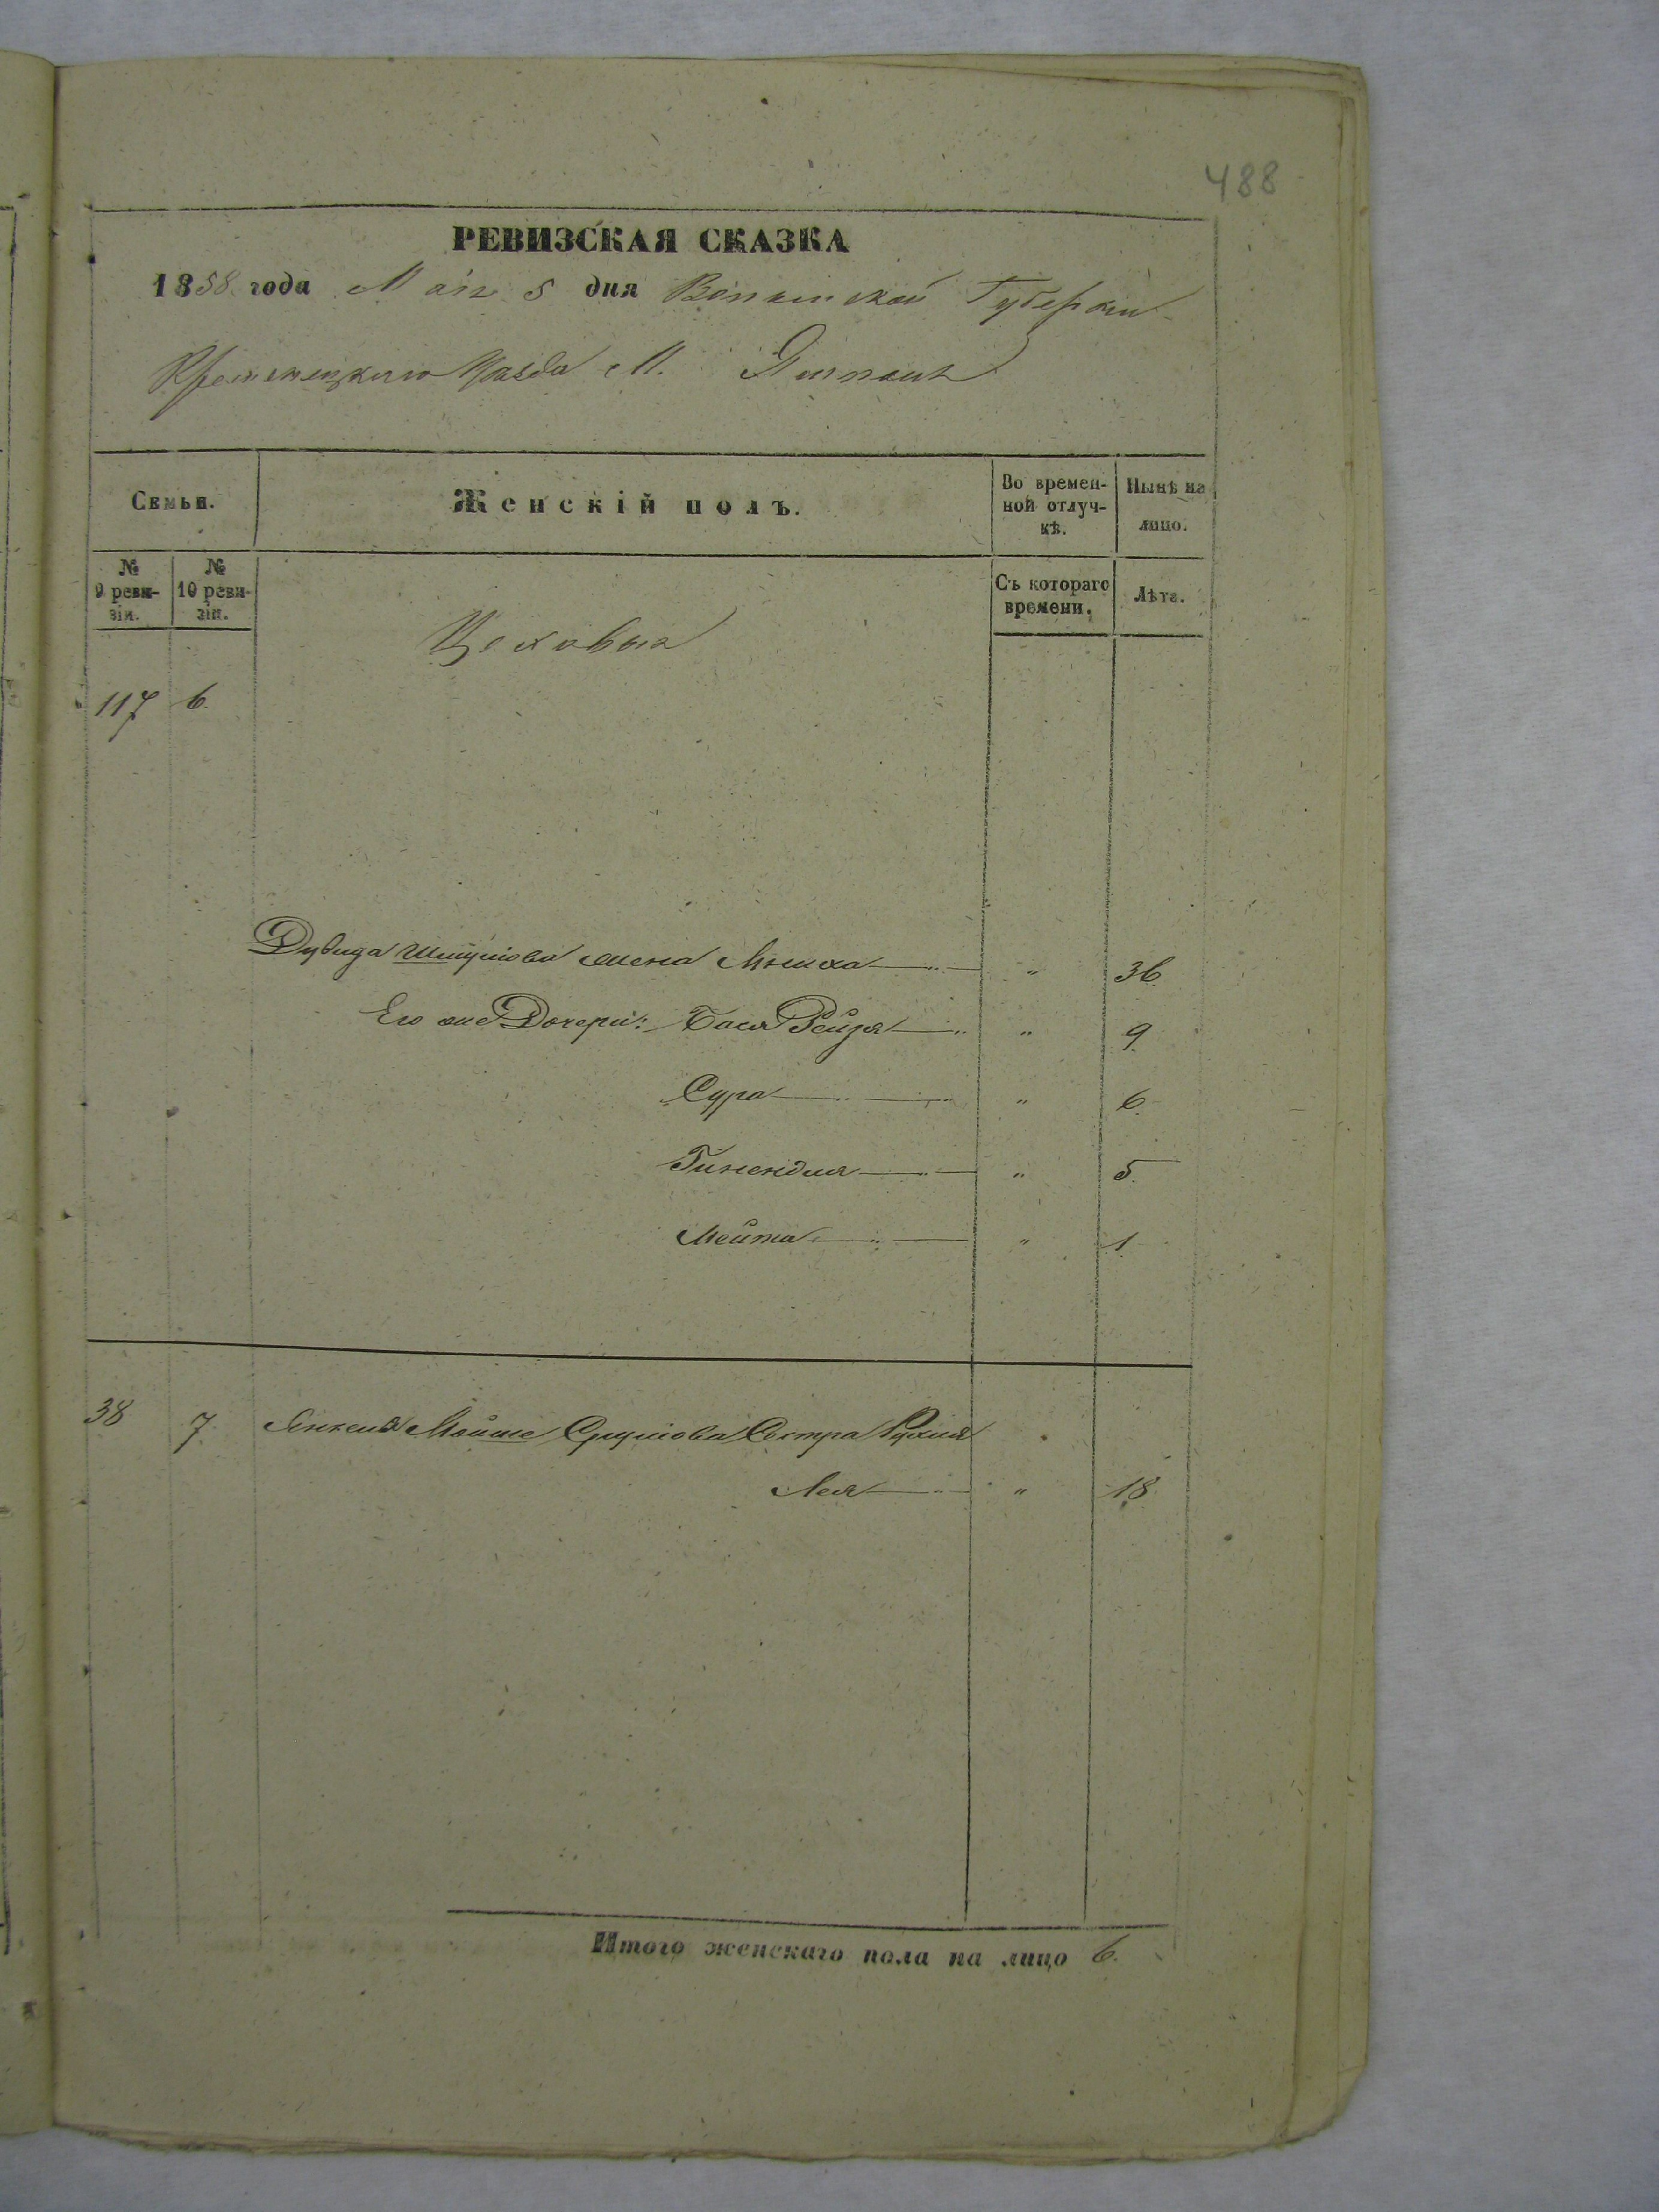 488
РЕВИЗСКАЯ СКАЗКА
1858 года Мая 5 дня Волынской Губерніи
Кременецкаго Уѣзда М. Ямполь
Семьи.
Женскій полъ.
Во времен-
ной отлуч-
кѣ.
Нынѣ на
лицо.
№
9 реви-
зіи.
№
10 реви-
зіи.
Съ котораго
времени.
Лѣта.
Цеховыя
117 6.
Дувида Шмулiова жена " 36
Его же Дочери: Бася Рейзя " 9.
Сура " 6.
Гинендля " 5.
Мейта " 1.
38 7. Янкеля Мойше Сруліова Сестра Рухля
Лея " 18.
Итого женскаго пола на лицо 6.